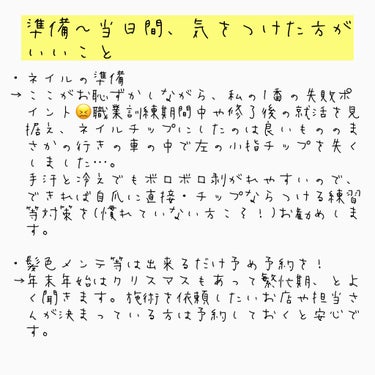 準備〜当日間、気をつけた方が
いいこと
・ネイルの準備
→ここがお恥ずかしながら、私の1番の失敗ポ
イント😖職業訓練期間中や修了後の就活を見
据え、ネイルチップにしたのは良いものの
まさかの行きの車の中で左の小指チップを失く
しました…。
手汗と冷えでもボロボロ剥がれやすいので、
できれば自爪に直接・チップならつける練習
等対策を(慣れていない方こそ！)お勧めしま
す。
・髪色メンテ等は出来るだけ予め予約を！
→年末年始はクリスマスもあって繁忙期、とよ
く聞きます。施術を依頼したいお店や担当さ
んが決まっている方は予約しておくと安心で
す。